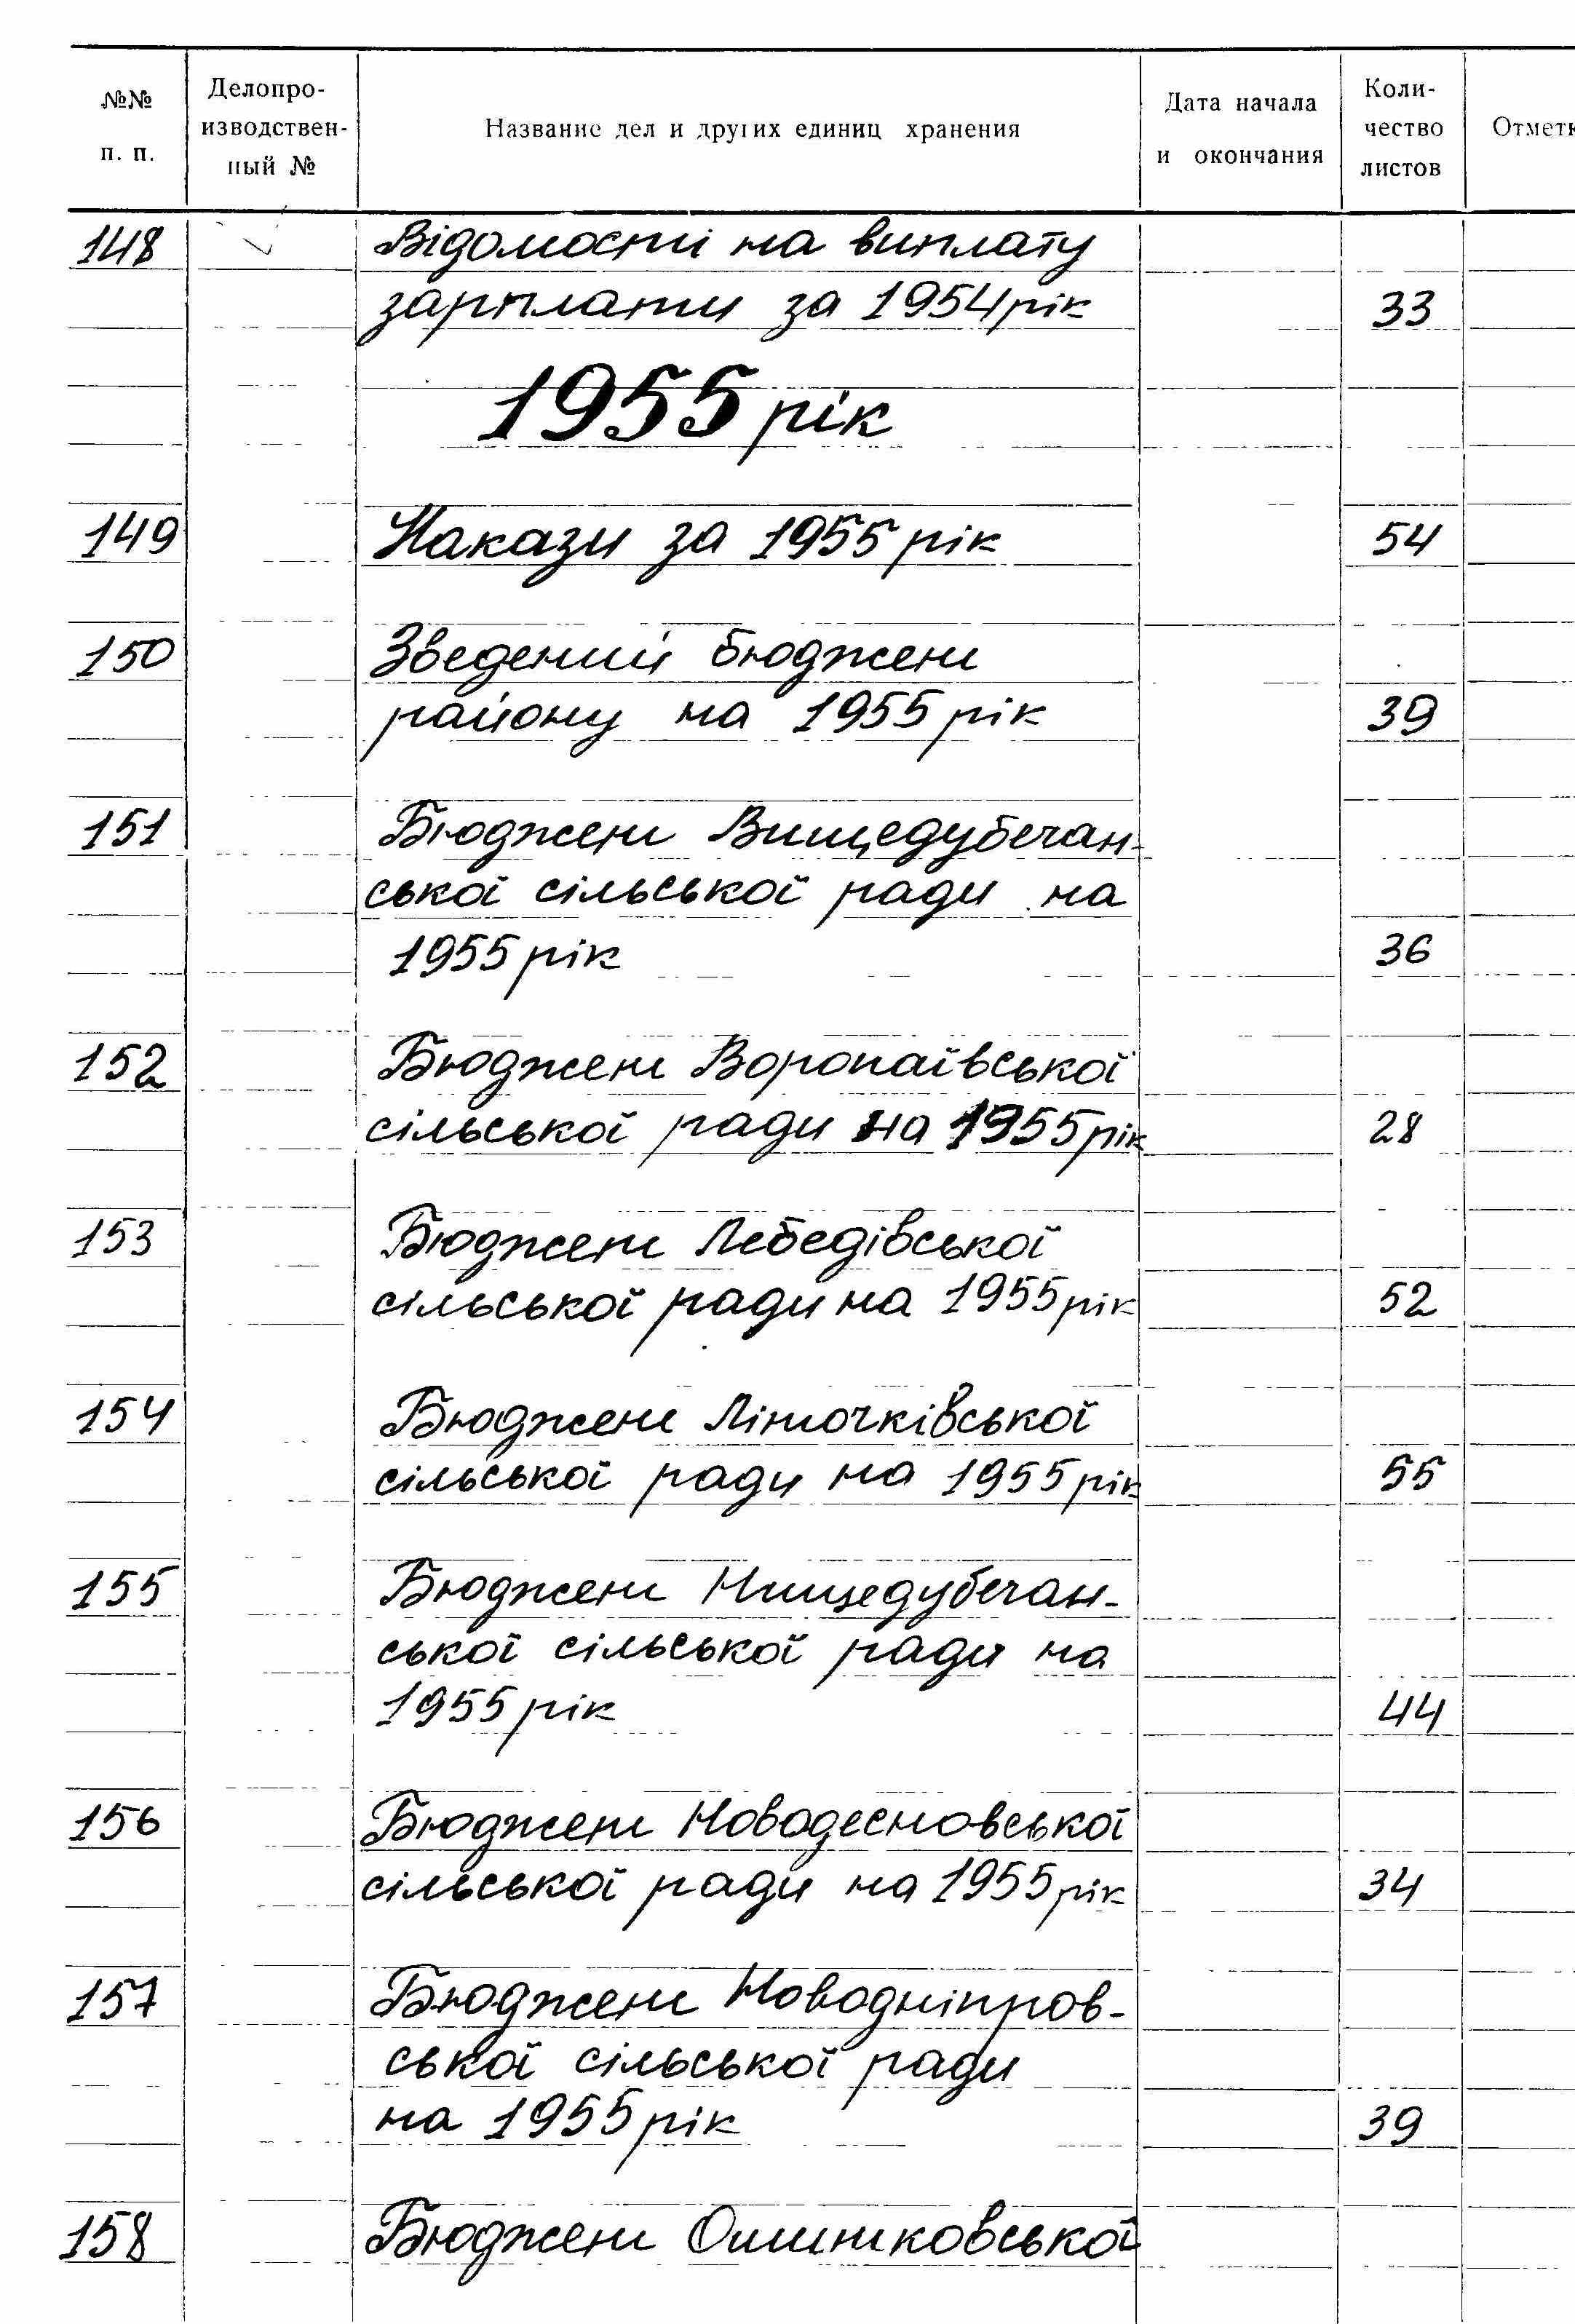 №№ п. п.
Делопро-
изводствен-
ный №
Название дел и других единиц хранения
Дата начала
и окончания
Коли-
чество
листов
Отметк
148 Відомості на виплату
зарплати за 1954 рік 33
1955 рік
149 Накази за 1955 рік 54
150 Зведений бюджет
району на 1955 рік 39
151 Бюджет Вищедубечан-
ської сільської ради на
1955 рік 36
152 Бюджет Воропаївської
сільської ради на 1955 рік 28
153 Бюджет Лебедівської
сільської ради на 1955 рік 52
154 Бюджет Літочківської
сільської ради на 1955 рік 55
155 Бюджет Нищедубечан-
ської сільської ради на
1955 рік 44
156 Бюджет Новодесновської
сільської ради на 1955 рік 34
157 Бюджет Новодніпров-
ської сільської ради
на 1955 рік 39
158 Бюджет